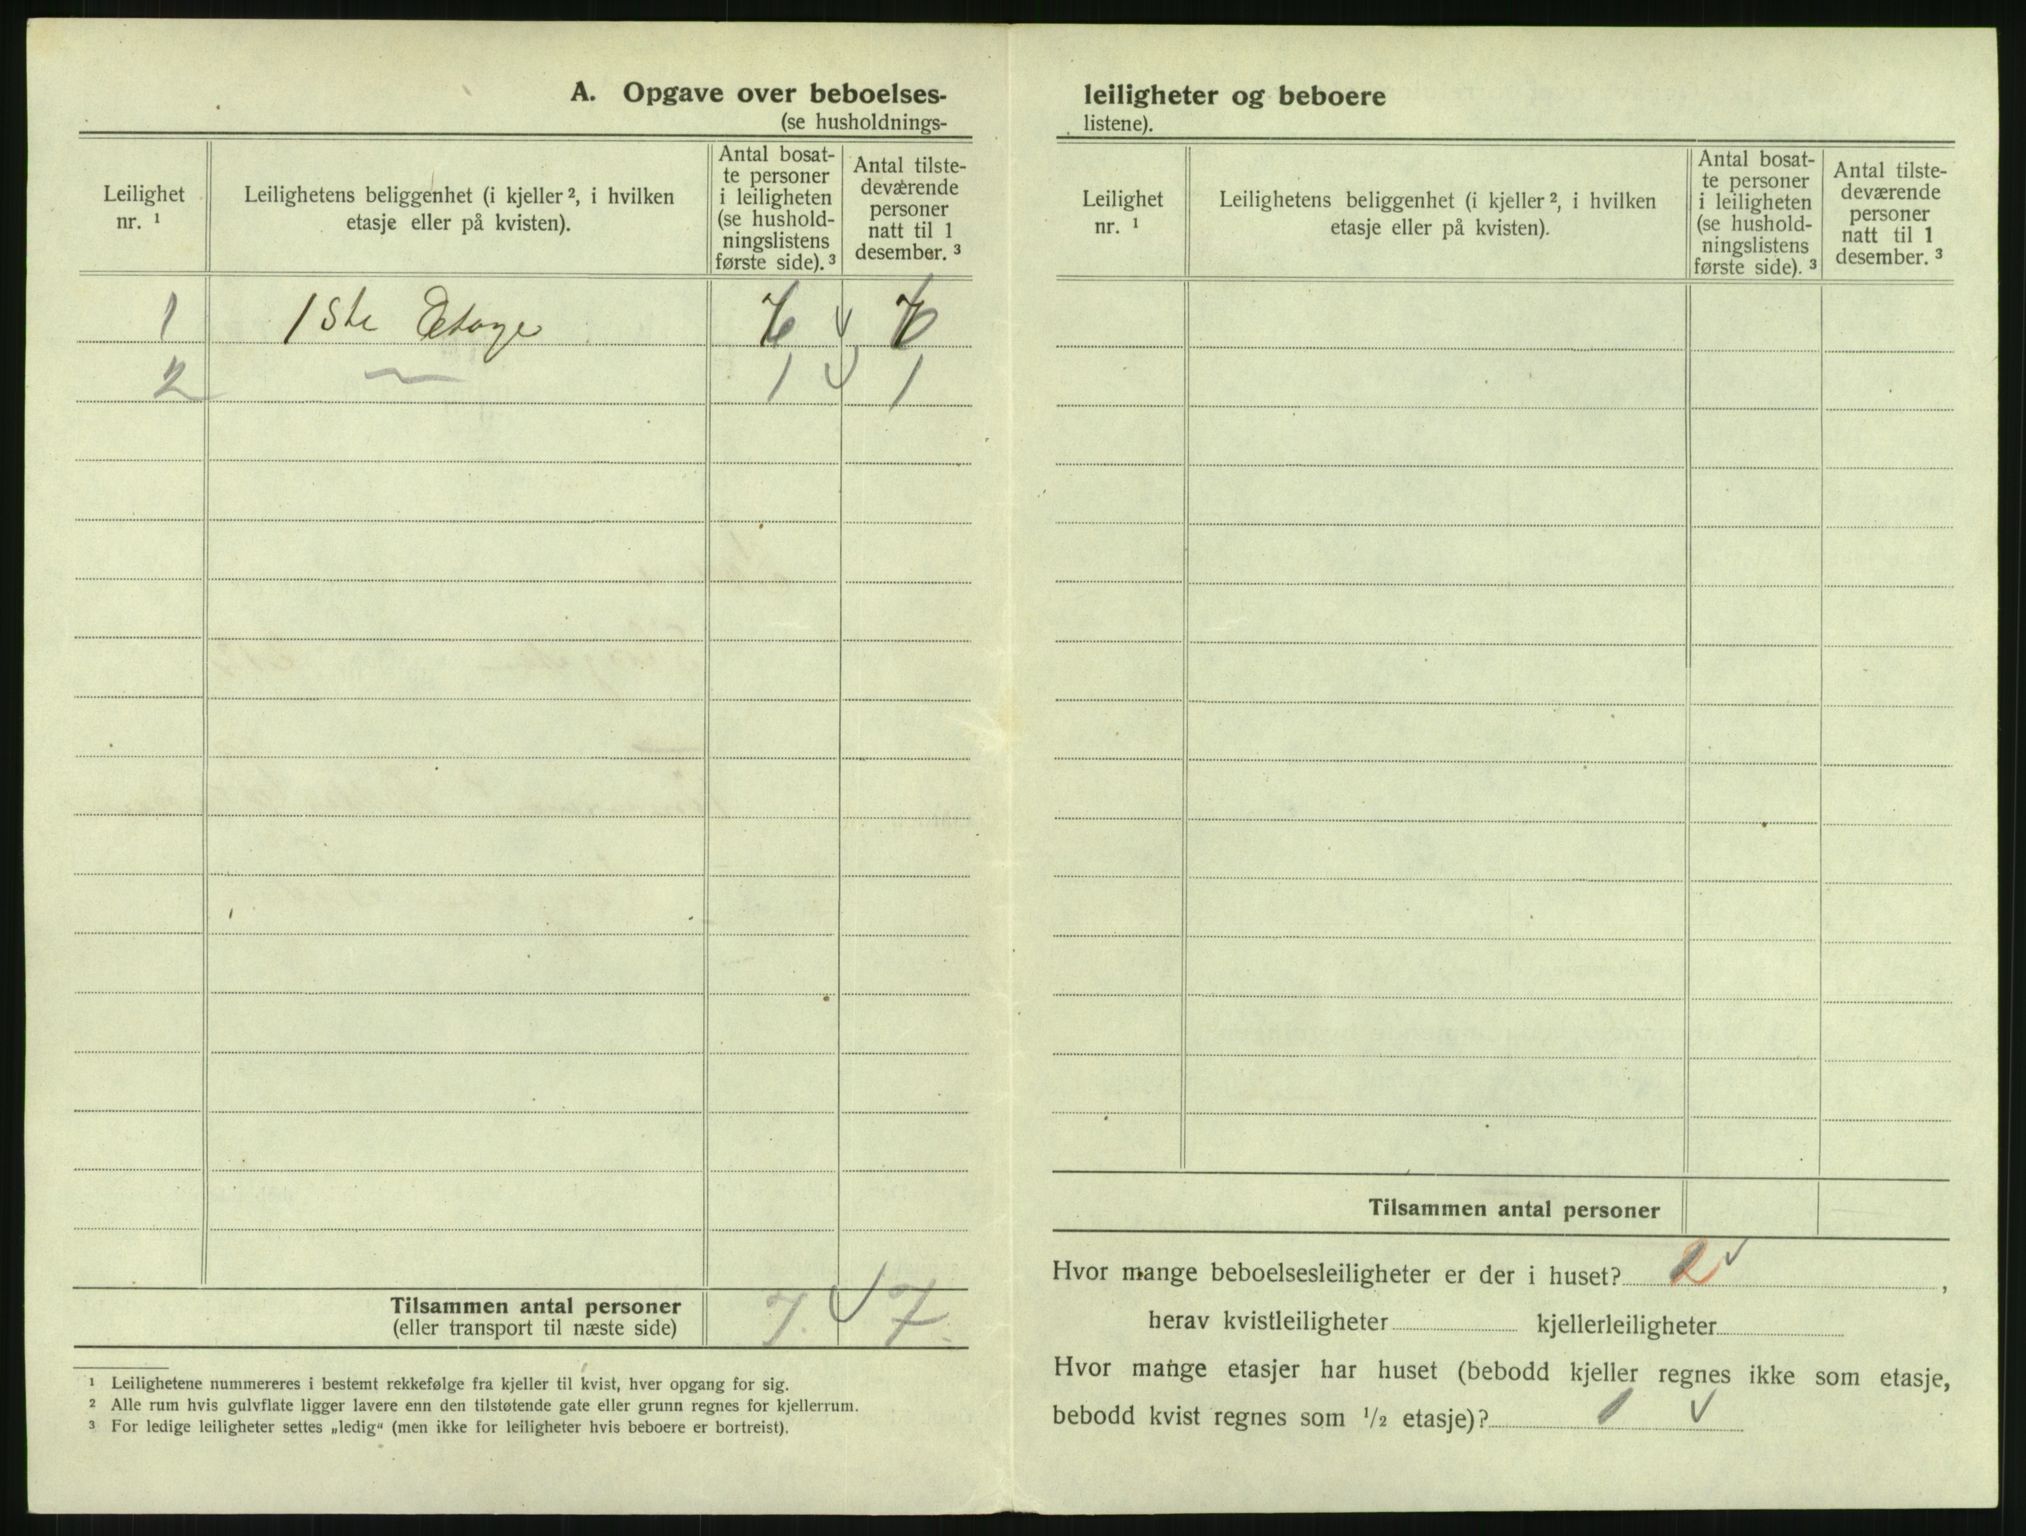 A. Opgave over beboelses-
(se husholdnings-
Leilighet
nr. ¹
Leilighetens beliggenhet (i kjeller ², i hvilken
etasje eller på kvisten).
Antal bosat-
te personer
i leiligheten
(se hushold-
ningslistens
første side). ³
Antal tilste-
deværende
personer
natt til 1
desember. ³
1 1ste Etage 6 √ 6
2 — 1 √ 1
Tilsammen antal personer
(eller transport til næste side)
7. √ 7.
¹ Leilighetene nummereres i bestemt rekkefølge fra kjeller til kvist, hver opgang for sig.
² Alle rum hvis gulvflate ligger lavere enn den tilstøtende gate eller grunn regnes for kjellerrum.
³ For ledige leiligheter settes „ledig“ (men ikke for leiligheter hvis beboere er bortreist).
leiligheter og beboere
listene).
Leilighet
nr. ¹
Leilighetens beliggenhet (i kjeller ², i hvilken
etasje eller på kvisten).
Antal bosat-
te personer
i leiligheten
(se hushold-
ningslistens
første side). ³
Antal tilste-
deværende
personer
natt til 1
desember. ³
Tilsammen antal personer
Hvor mange beboelsesleiligheter er der i huset? 2 √,
herav kvistleiligheter kjellerleiligheter
Hvor mange etasjer har huset (bebodd kjeller regnes ikke som etasje,
bebodd kvist regnes som ¹/₂ etasje)? 1 √